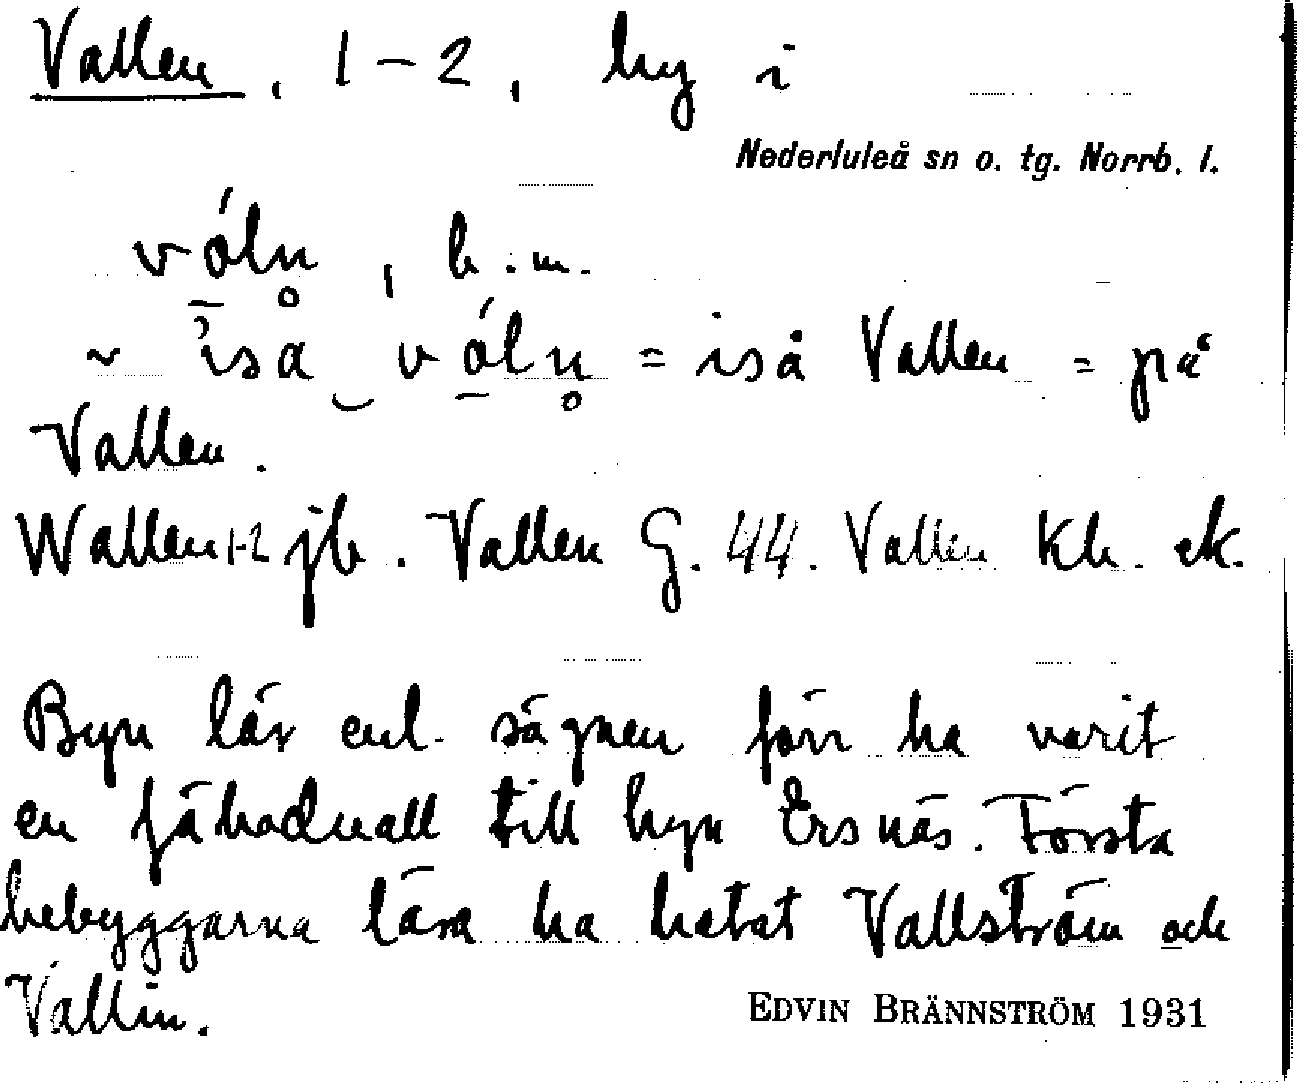 Vallen, 1-2, by i
Nederluleå sn o. tg. Norrb. l.
vóln̥, b.m.
~ isa‿vóln̥ = iså Vallen = på
Vallen.
Wallen 1-2 jb. Vallen G. 44. Vallen Kb. ek.
Byn lär enl. sägnen förr ha varit
en fäbodvall till byn Ersnäs. Första
bebyggarna lära ha hetat Vallström och
Vallin.
EDVIN BRÄNNSTRÖM 1931